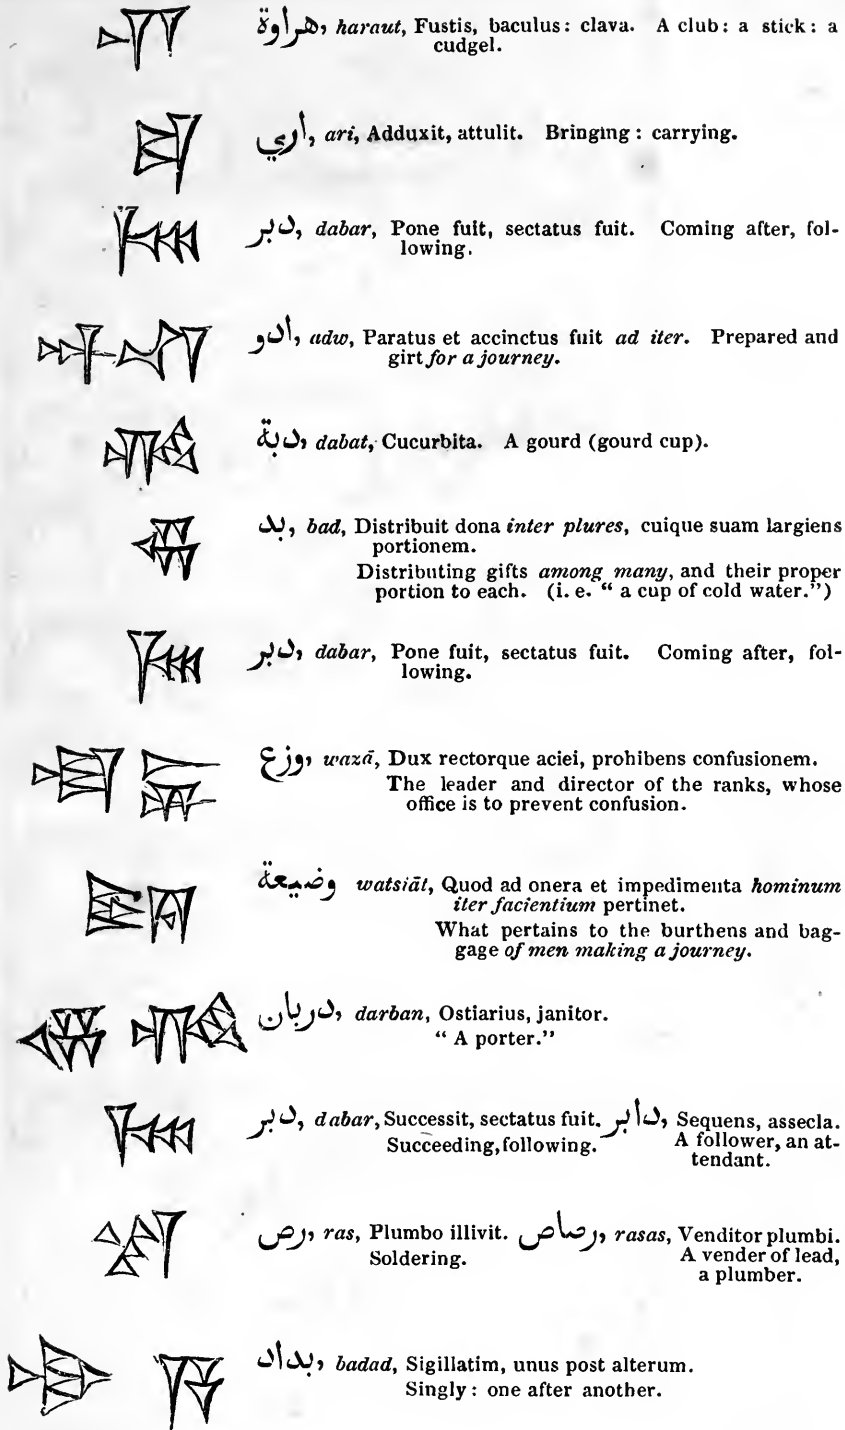 هراوة, haraut, Fustis, baculus: clava. A club: a stick: a
cudgel.
أري, ari, Adduxit, attulit. Bringing: carrying.
دبر, dabar, Pone fuit, sectatus fuit. Coming after, fol-
lowing.
أدو, adw, Paratus et accinctus fuit ad iter. Prepared and
girt for a journey.
دبة, dabat, Cucurbita. A gourd (gourd cup).
بد, bad, Distribuit dona inter plures, cuique suam largiens
portionem.
Distributing gifts among many, and their proper
portion to each. (i. e. “ a cup of cold water.”)
دبر, dabar, Pone fuit, sectatus fuit. Coming after, fol-
lowing.
وزع, wazā, Dux rectorque aciei, prohibens confusionem.
The leader and director of the ranks, whose
office is to prevent confusion.
وضيعة watsiāt, Quod ad onera et impedimenta hominum
iter facientium pertinet.
What pertains to the burthens and bag-
gage of men making a journey.
دربان, darban, Ostiarius, janitor.
“ A porter.”
دبر, dabar, Successit, sectatus fuit. دأبر, Sequens, assecla.
Succeeding, following. A follower, an at-
tendant.
رص, ras, Plumbo illivit. رصاص, rasas, Venditor plumbi.
Soldering. A vender of lead,
a plumber.
بداد, badad, Sigillatim, unus post alterum.
Singly: one after another.